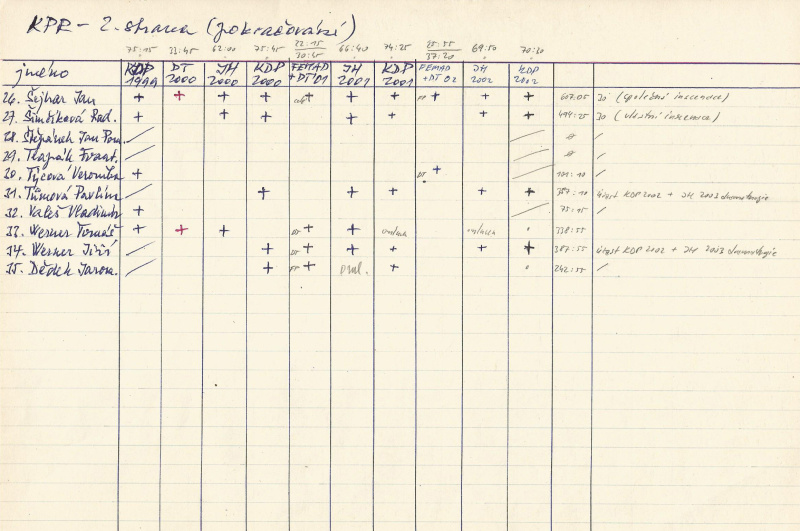 KPR - 2. strana (pokračování)
75:15 33:45 62:00 75:45 22:15 66:40 74:25 25:55 69:50 70:20
30:45 37:20
jméno KDP 1999 DT 2000 JH 2000 KDP 2000 FEMAD + DT 01 JH 2001 KDP 2001 FEMAD + DT 02 JH 2002 KDP 2002
26. Šejhar Jan + + + + + + + + + + 607:05 Jo (společné inscenace)
27. Šimčíková Rad. + + + + + + + 494:25 Jo (vlastní inscenace)
28. Štěpánek Jan
29. Frant.
30. Týcová Veronika + DT + 101:10 /
31. Tůmová Pavlína + + + + + 357:10 účast KDP 2002 + JH 2003 dramaturgie
32. Valeš Vladimír + 75:15 /
33. Werner Tomáš + + + DT + + omluven omluven 0 338:55
34. Werner Jiří + DT + + + + + 387:55 účast KDP 2002 + JH 2003 dramaturgie
35. Dědek Jarom. + DT + oml. + 0 242:55 /